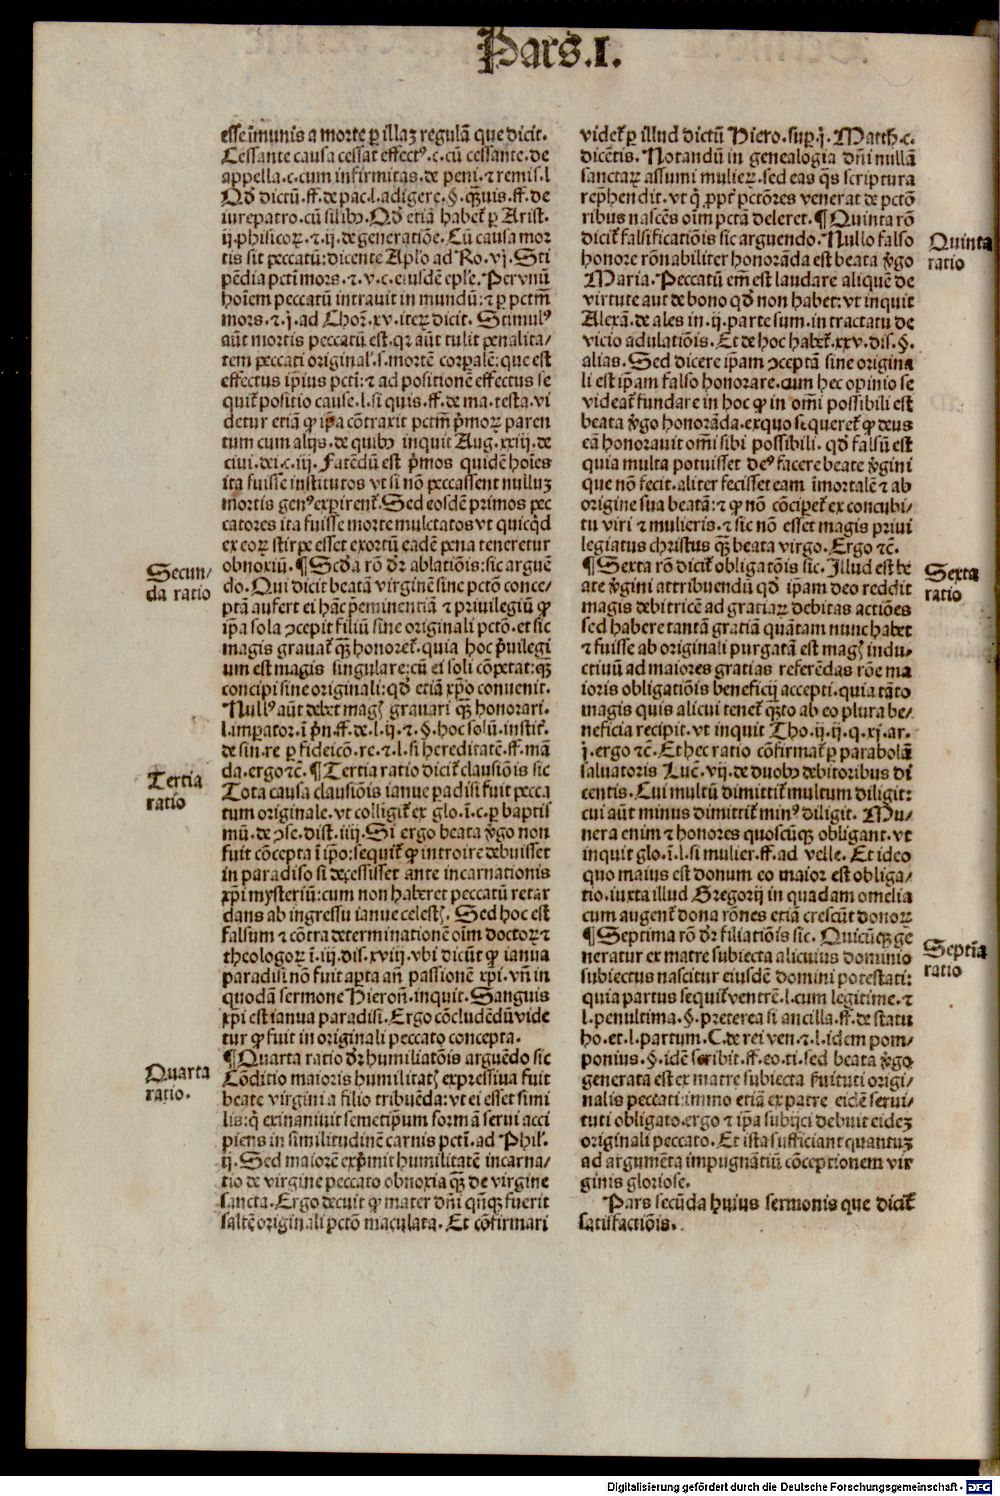 Pars.I.
esse īmunis a morte ꝑ illaꝫ regulā que dicit.
Cessante causa cessat effectꝰ.c.cū cessante.de
appella.c.cum infirmitas.de peni.⁊ remis.l
Qđ dictū.ff.de pac.l.adigere.§.q̄uis.ff.de
iurepatro.cū silibꝫ.Qđ etiā habet᷑ ꝑ Arist.
ij.phisicoꝝ.⁊.ij.de generatiōe. Cū causa mor
tis sit peccatū: dicente Aplo ad Ro.vj. Sti
pēdia pcti mors.⁊.v.c.eiusdē eple. Per vnū
hoīem peccatū intrauit in mundū: ⁊ ꝑ pctm̄
mors.⁊.j.ad Chor̄.xv.iteꝝ dicit. Stimulꝰ
aūt mortis peccatū est.qꝛ aūt tulit penalita/
tem peccati original'.s.mortē corꝑalē: que est
effectus ip̄ius pcti: ⁊ ad positionē effectus se
quit᷑ positio cause.l.si quis.ff.de ma.testa.vi
detur etiā ꝙ ip̄a cōtraxit pctm̄ p̄moꝝ paren
tum cum alijs.de quibꝫ inquit Aug.xxiij.de
ciui.dei.c.iij. Fatēdū est p̄mos quidē hoīes
ita fuisse institutos vt si nō peccassent nulluꝫ
mortis genꝰ exꝑirent᷑. Sed eosdē primos pec
catores ita fuisse morte mulctatos vt quicq̄d
ex eoꝝ stirpe esset exortū eadē pena teneretur
obnoxiū. ¶ Scd̄a rō dr̄ ablatiōis: sic arguē
do. Qui dicit beatā virginē sine pctō conce-
ptā aufert ei hāc p̄eminentiā ⁊ priuilegiū ꝙ
ip̄a sola ɔcepit filiū sine originali pctō. et sic
magis grauat᷑ q̄ꝫ honoret᷑. quia hoc p̄uilegi
um est magis singulare: cū ei soli cōpetat: q̄ꝫ
concipi sine originali: qđ etiā xp̄o conuenit.
Nullꝰ aūt debet mag̃ grauari q̄ꝫ honorari.
l.imperator.ī p̄n.ff.de.l.ij.⁊.§.hoc solū.instit᷑.
de sin.re ꝑ fideicō.re.⁊.l.si hereditatē.ff.mā
da.ergo ⁊c̄. ¶ Tertia ratio dicit᷑ clausiōis sic
Tota causa clausiōis ianue ꝑadisi fuit pecca
tum originale.vt colligit᷑ ex glo.ī.c.ꝑ baptis
mū.de ɔse.dist.iiij. Si ergo beata v̄go non
fuit cōcepta ī ip̄o: sequit᷑ ꝙ introire debuisset
in paradiso si decessisset ante incarnationis
xp̄i mysteriū: cum non haberet peccatū retar
dans ab ingressu ianue celest̃. Sed hoc est
falsum ⁊ cōtra determinationē oīm doctoꝝ ⁊
theologoꝝ ī.iij.dis.xviij.vbi dicūt ꝙ ianua
paradisi nō fuit aꝑta añ passionē xp̄i.vñ in
quodā sermone Hieroñ.inquit. Sanguis
xp̄i est ianua paradisi. Ergo cōcludēdū vide
tur ꝙ fuit in originali peccato concepta.
¶ Quarta ratio dr̄ humiliatōis arguēdo sic
Cōditio maioris humilitat̃ expressiua fuit
beate virgini a filio tribuēda: vt ei esset simi
lis: q̇ exinaniuit semetip̄um formā serui acci
piens in similitudinē carnis pcti.ad Phil'.
ij. Sed maiorē exp̄mit humilitatē incarna/
tio de virgine peccato obnoxia q̄ꝫ de virgine
sancta. Ergo decuit ꝙ mater dn̄i qn̄qꝫ fuerit
saltē originali pctō maculata. Et cōfirmari
videt᷑ ꝑ illud dictū Hiero.suꝑ.j. Matth.c.
dicētis. Notandū in genealogia dn̄i nullā
sanctaꝝ assumi mulieꝝ.sed eas q̄s scriptura
rep̄hendit.vt q̇ ꝓpt᷑ pctōres venerat de pctō
ribus nascēs oīm pctā deleret. ¶ Quinta rō
dicit᷑ falsificatiōis sic arguendo. Nullo falso
honore rōnabiliter honorāda est beata v̄go
Maria. Peccatū em̄ est laudare aliquē de
virtute aut de bono qđ non habet: vt inquit
Alexā.de ales in.ij.parte sum.in tractatu de
vicio adulatiōis. Et de hoc habet᷑.xxv.dis.§.
alias. Sed dicere ip̄am ɔceptā sine origina
li est ip̄am falso honorare.cum hec opinio se
videat᷑ fundare in hoc ꝙ in om̄i possibili est
beata v̄go honorāda.exquo sequeret᷑ ꝙ deus
eā honorauit om̄i sibi possibili.qđ falsū est
quia multa potuisset deꝰ facere beate v̄gini
que nō fecit.aliter fecisset eam īmortalē ⁊ ab
origine sua beatā: ⁊ ꝙ nō cōciꝑet᷑ ex concubi/
tu viri ⁊ mulieris.⁊ sic nō esset magis priui
legiatus christus q̄ꝫ beata virgo. Ergo ⁊c̄.
¶ Sexta rō dicit᷑ obligatōis sic. Illud est be
ate v̄gini attribuendū qđ ip̄am deo reddit
magis debitricē ad gratiaꝝ debitas actiōes
sed habere tantā gratiā quātam nunc habet
⁊ fuisse ab originali purgatā est mag̃ indu/
ctiuū ad maiores gratias referēdas rōe ma
ioris obligatiōis beneficij accepti.quia tāto
magis quis alicui tenet᷑ q̄ꝫto ab eo plura be/
neficia recipit.vt inquit Tho.ij.ij.q.xj.ar.
j.ergo ⁊c̄. Et hec ratio cōfirmat᷑ ꝑ parabolā
saluatoris Luc̄.vij.de duobꝫ debitoribus di
centis. Cui multū dimittit᷑ multum diligit:
cui aūt minus dimittit᷑ minꝰ diligit. Mu/
nera enim ⁊ honores quoscūqꝫ obligant.vt
inquit glo.ī.l.si mulier.ff.ad velle. Et ideo
quo maius est donum eo maior est obliga/
tio.iuxta illud Gregorij in quadam omelia
cum augent᷑ dona rōnes etiā crescūt donoꝝ
¶ Septima rō dr̄ filiatiōis sic. Quicūqꝫ ge
neratur ex matre subiecta alicuius dominio
subiectus nascitur eiusdē domini potestati:
quia partus sequit᷑ ventrē.l.cum legitime.⁊
l.penultima.§.preterea si ancilla.ff.de statu
ho.et.l.partum.C.de rei ven.⁊.l.idem pom-
ponius.§.idē scribit.ff.eo.ti.sed beata v̄go
generata est ex matre subiecta ẜuituti origi/
nalis peccati: immo etiā ex patre eidē serui/
tuti obligato.ergo ⁊ ip̄a subijci debuit eideꝫ
originali peccato. Et ista sufficiant quantuꝫ
ad argumēta impugnātiū cōceptionem vir
ginis gloriose.
Pars secūda huius sermonis que dicit᷑
satisfactiōis.
Secun/
da ratio
Tertia
ratio
Quarta
ratio.
Quinta
ratio
Sexta
ratio
Septīa
ratio
Digitalisierung gefördert durch die Deutsche Forschungsgemeinschaft - DFG